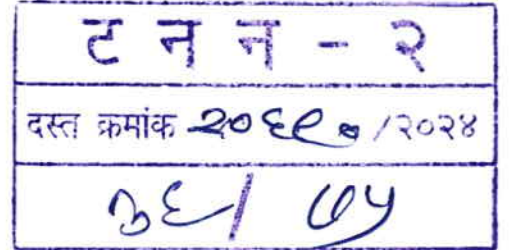 ट न न - २
दस्त क्रमांक २०६९० /२०२४
३६/ ७५